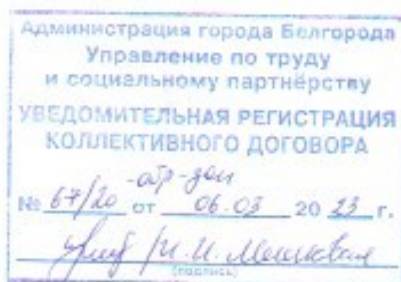 Администрация города Белгорода
Управление по труду
и социальному партнёрству
УВЕДОМИТЕЛЬНАЯ РЕГИСТРАЦИЯ
КОЛЛЕКТИВНОГО ДОГОВОРА
№ 67/20 от 06.03 20 23 г.
(подпись)